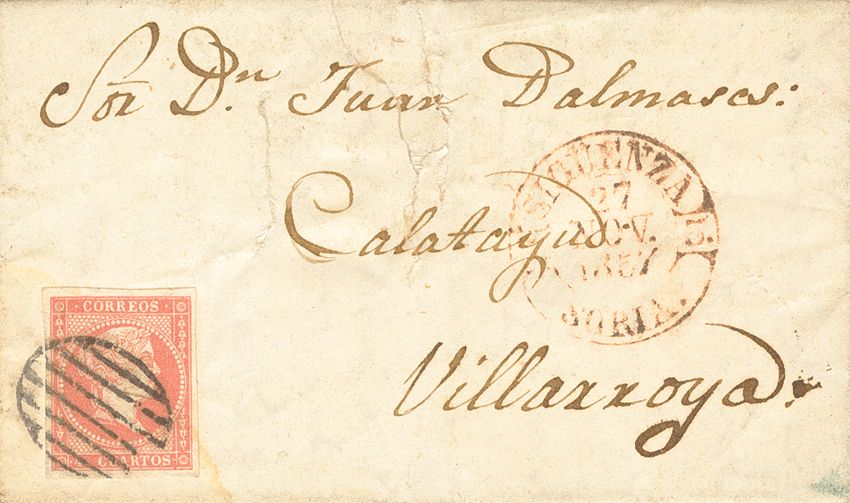 Sor. Dn. Juan Dalmases:
Calatayud
SIGUENZA
27
NOV.
1857
SORIA.
Villarroya.
CORREOS
CUARTOS